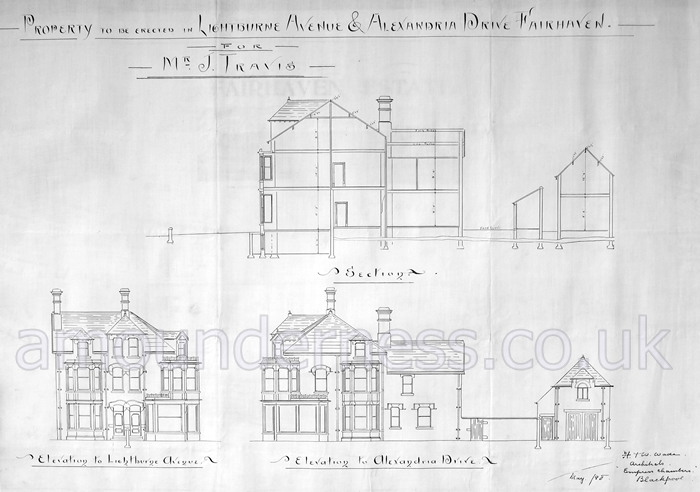 PROPERTY TO BE ERECTED IN LIGHTBURNE AVENUE & ALEXANDRIA DRIVE FAIRHAVEN.
FOR
MR. J. TRAVIS
Section.
amounderness.co.uk
Elevation to Lightburne Avenue.
Elevation to Alexandria Drive.
Architects
Empress Chambers
Blackpool
May /95